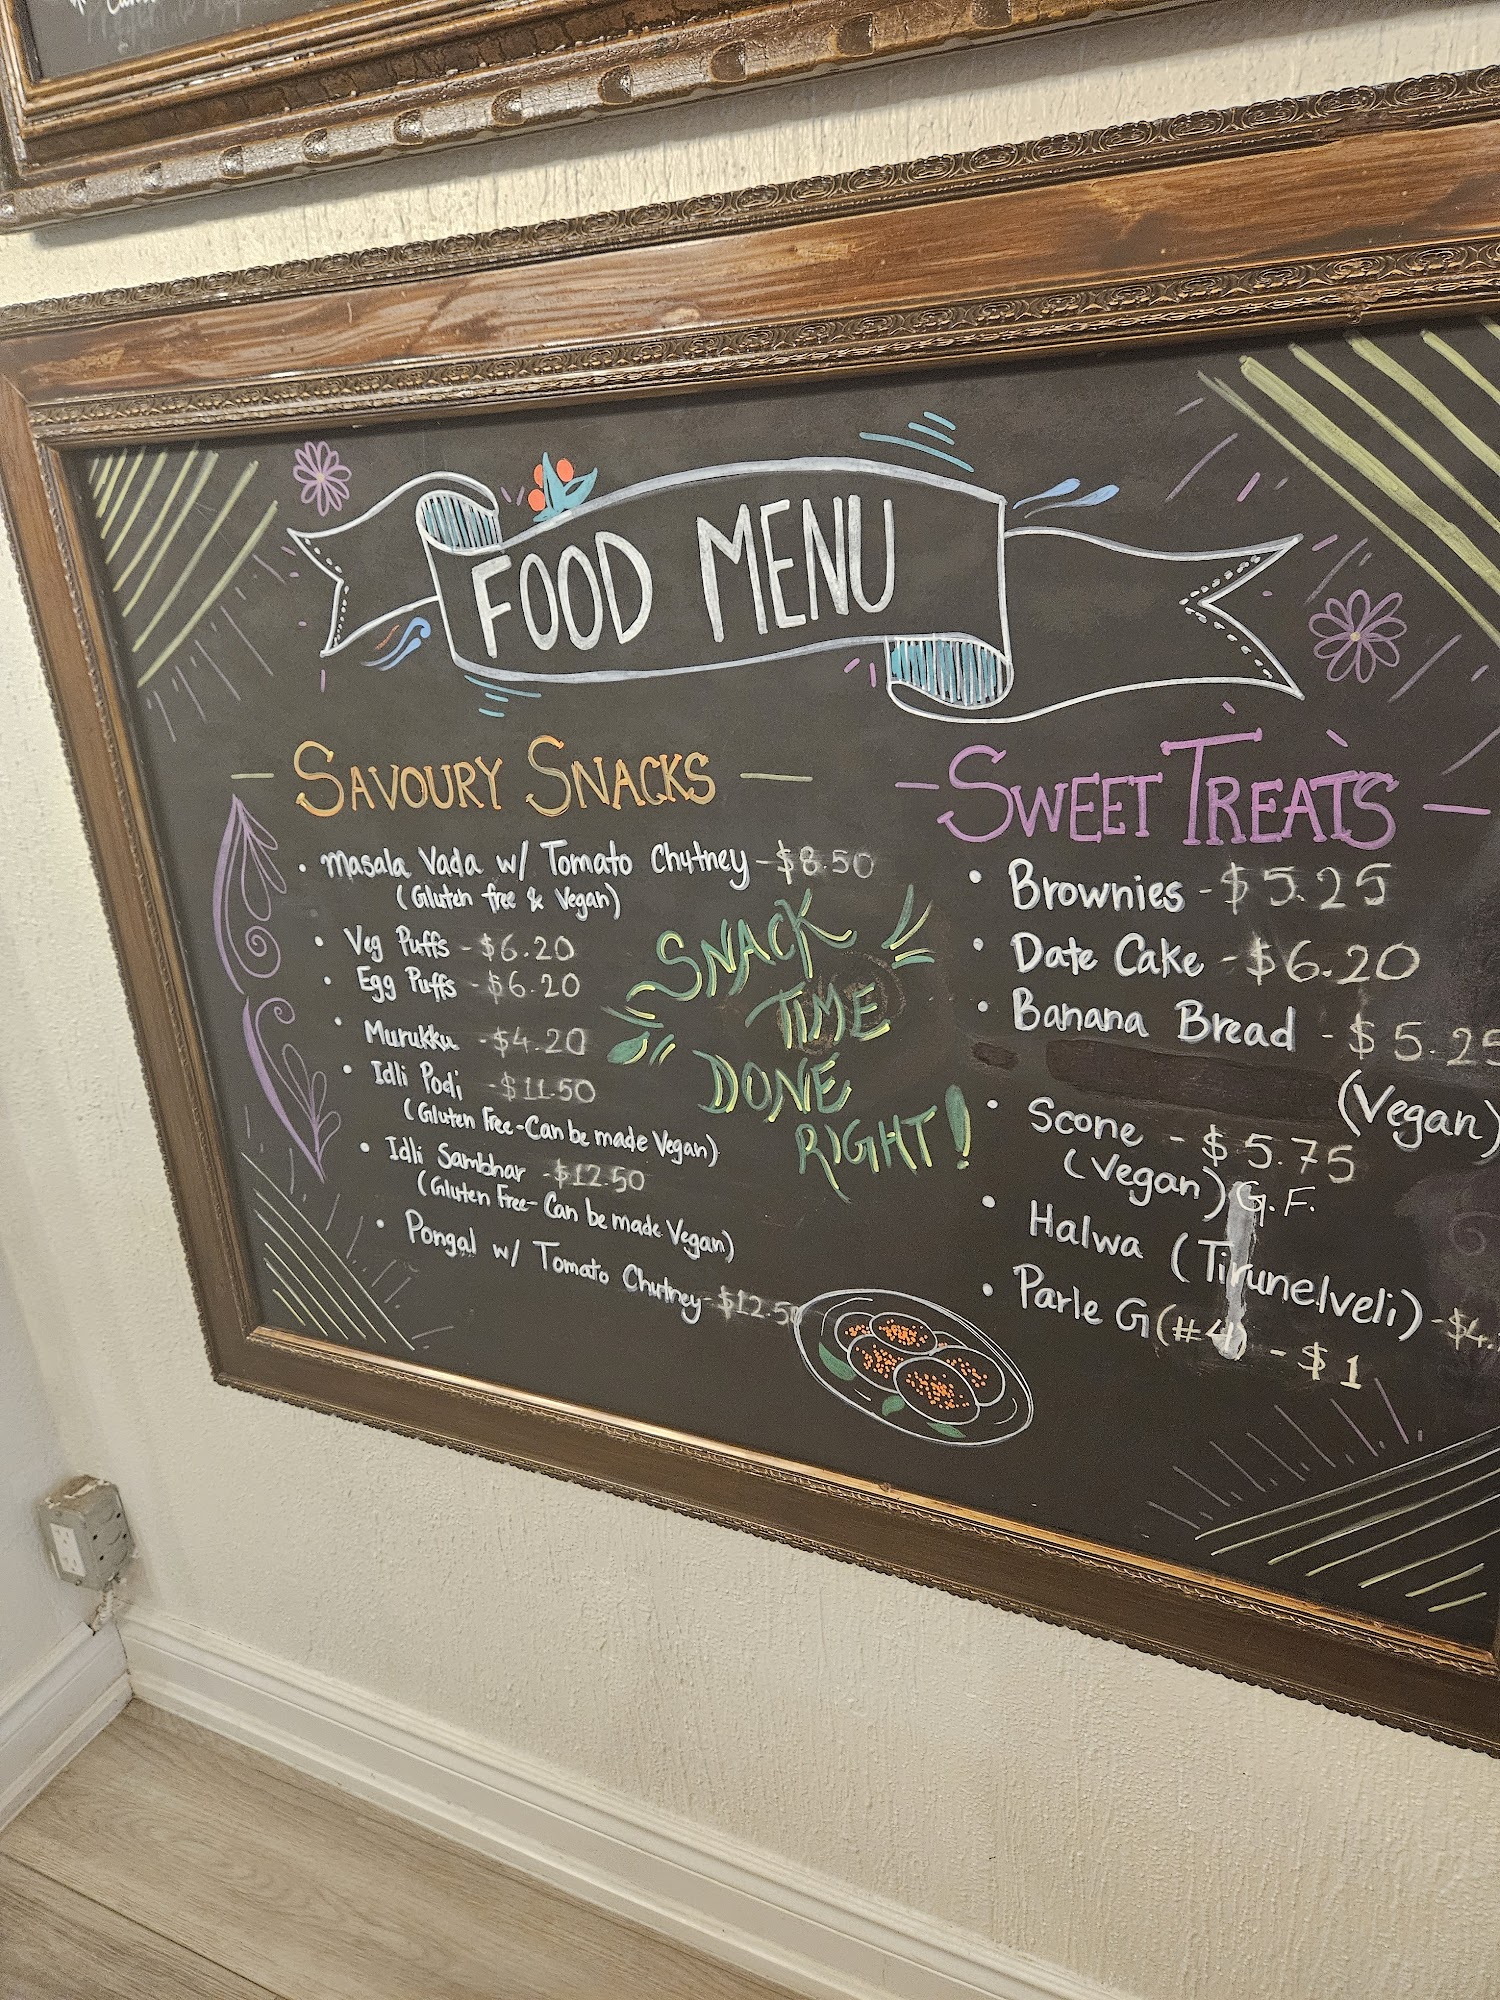 FOOD MENU
SAVOURY SNACKS
• Masala Vada w/ Tomato Chutney - $8.50
(Gluten free & Vegan)
• Veg Puffs - $6.20
• Egg Puffs - $6.20
• Murukku - $4.20
• Idli Podi - $11.50
(Gluten Free - Can be made Vegan)
• Idli Sambhar - $12.50
(Gluten Free - Can be made Vegan)
• Pongal w/ Tomato Chutney - $12.50
SNACK
TIME
DONE
RIGHT!
SWEET TREATS
• Brownies - $5.25
• Date Cake - $6.20
• Banana Bread - $5.25
(Vegan)
• Scone - $5.75
(Vegan) G.F.
• Halwa (Tirunelveli) - $4.
• Parle G (#4) - $1